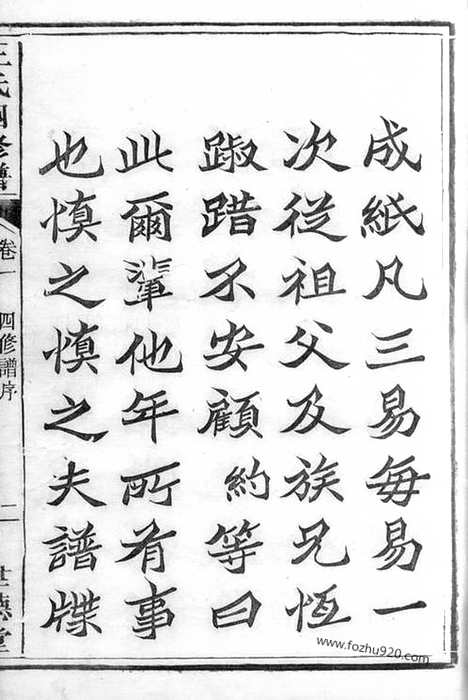 成紙凡三易每易一
次從祖父及族兄恆
踧踖不安顧約等曰
此爾輩他年所有事
也慎之慎之夫譜牒
王氏四修譜
卷一
四修譜序
二
世德堂
www.fozhu920.com